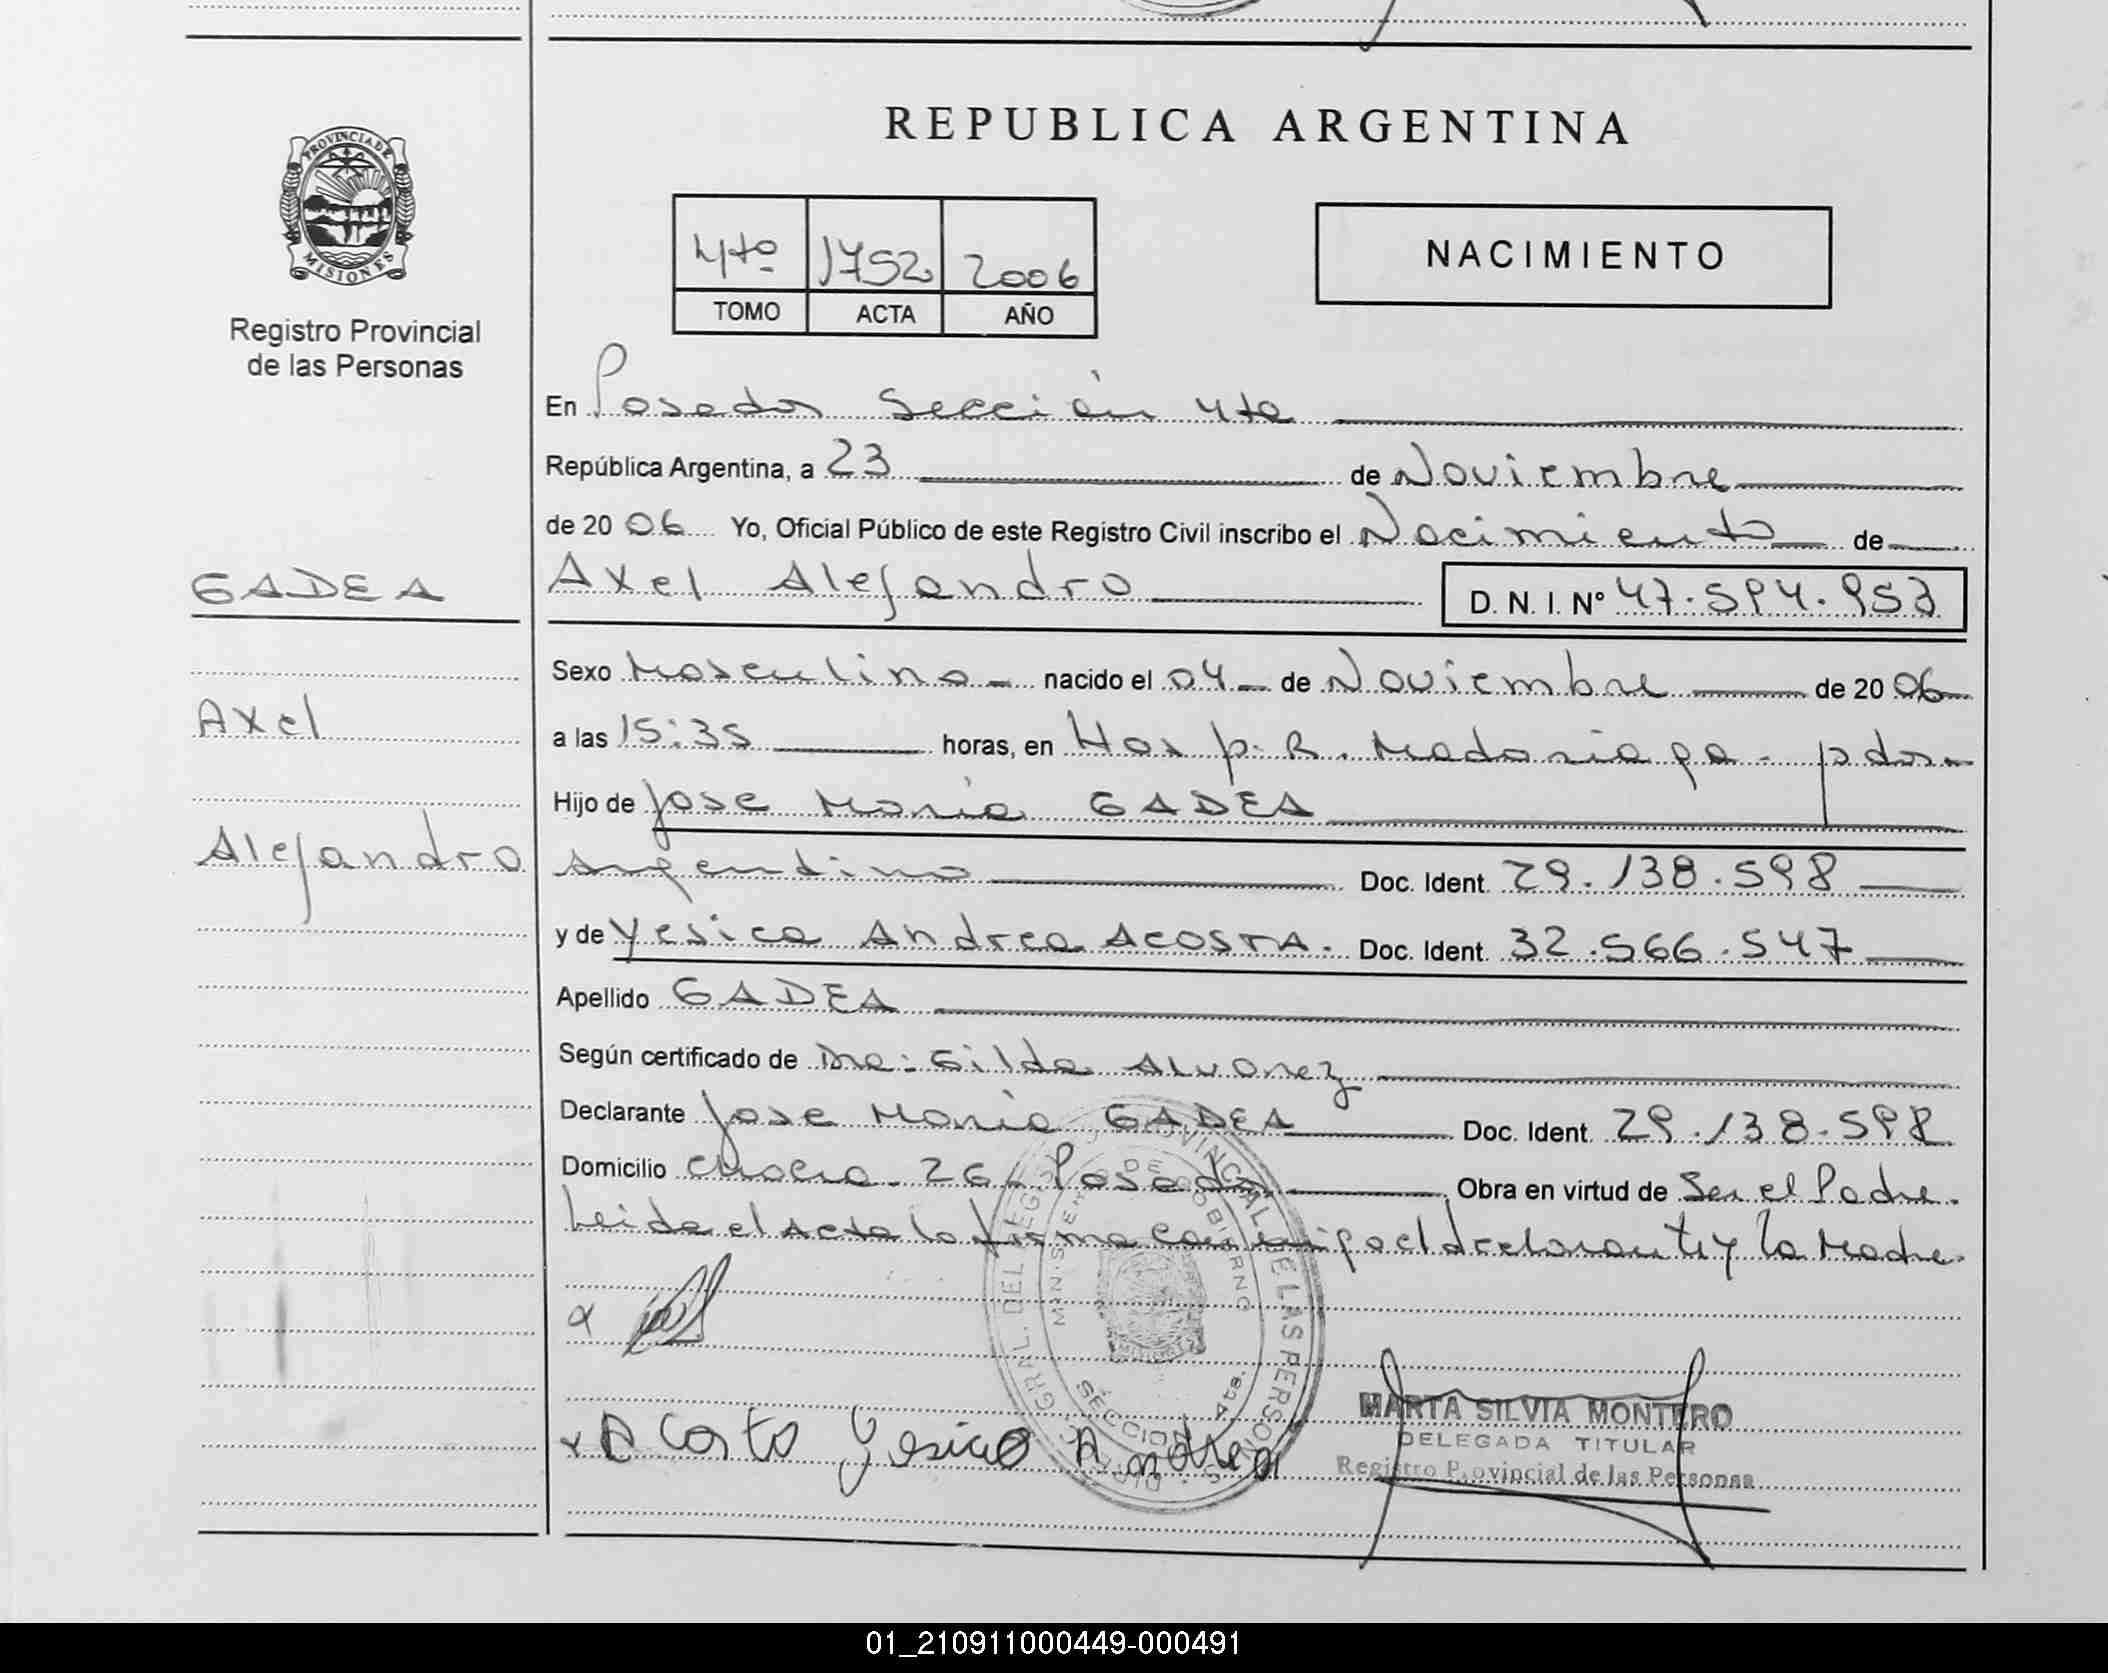 PROVINCIA DE
MISIONES
Registro Provincial
de las Personas
REPUBLICA ARGENTINA
4to 1752 2006
TOMO ACTA AÑO
NACIMIENTO
En Posadas Sección 4ta
República Argentina, a 23 de Noviembre
de 20 06 Yo, Oficial Público de este Registro Civil inscribo el Nacimiento de
GADEA
Axel Alejandro D. N. I. Nº 47.594.953
Sexo Masculino nacido el 04 de Noviembre de 20 06
Axel
a las 15:35 horas, en Hosp. R. Madariaga - pdas
Hijo de Jose Maria GADEA
Alejandro
Argentino Doc. Ident. 29.138.598
y de Yesica Andrea ACOSTA. Doc. Ident. 32.566.547
Apellido GADEA
Según certificado de Dra: Gilda Alvarez
Declarante Jose Maria GADEA Doc. Ident. 29.138.598
Domicilio 26 - Posadas Obra en virtud de Ser el Padre.
Leida el Acta la firma conmigo el declarante y la Madre
Acosta Yesica Andrea
DEL REGISTRO PROVINCIAL DE LAS PERSONAS
MINISTERIO DE GOBIERNO
SECCION 4ta.
MARTA SILVIA MONTERO
DELEGADA TITULAR
Registro Provincial de las Personas
01_210911000449-000491